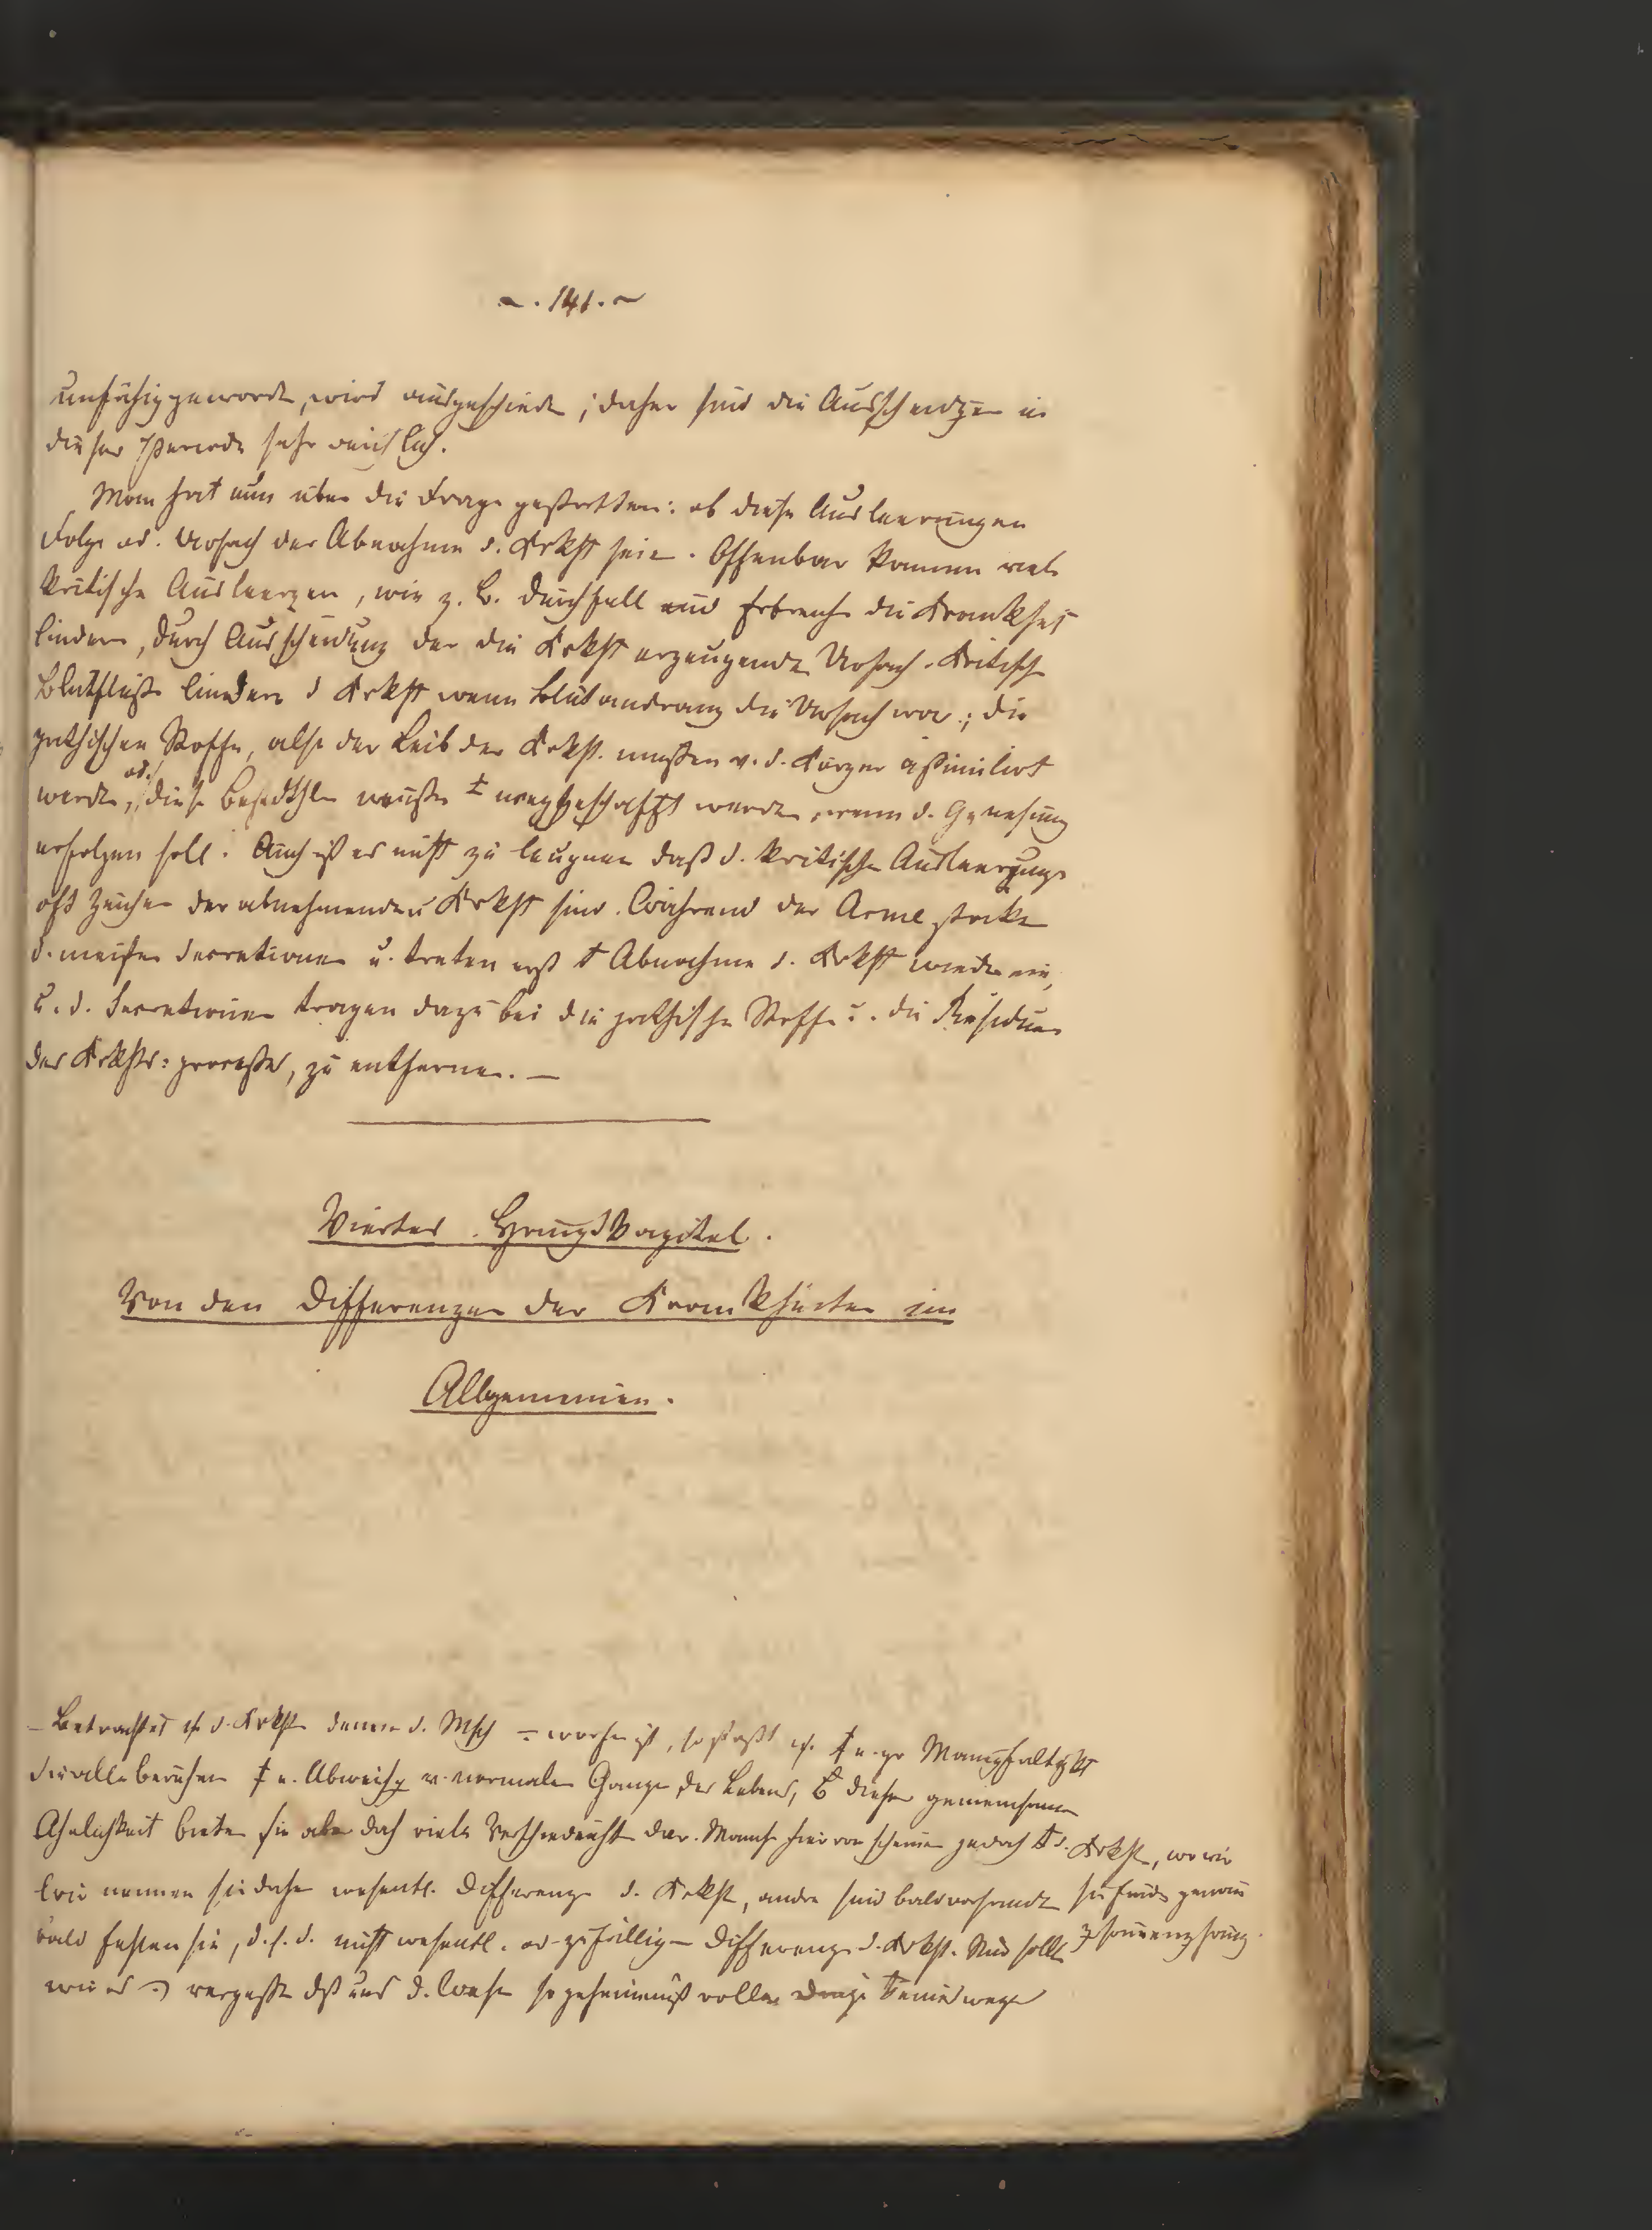 ~. 141. ~
unfähig geworde, wird ausgeschiede; daher sind die Ausscheidgen in
dieser Periode sehr reichlich.
Man hat nun über die Frage gestritten: ob diese Ausleerungen
Folge od. Ursach der Abnahme d. Krkht seie. Offenbar können viele
kritische Ausleergen, wie z. B. Durchfall und Erbreche die Krankheit
lindern, durch Ausscheidung der die Krkht erzeugende Ursach. Kritische
Blutflüße lindern d Krkht wenn Blutandrang die Ursach war; die
pathischen Stoffe, also der Leib der Krkht. mußen v. d. Körper aßimilirt
werde, od. diese müße weggeschafft werde, wenn d. Genesung
erfolgen soll. Auch ist es nicht zu leugnen daß d. kritische Ausleerunge
oft Zeichen der abnehmenden Krkht sind. Während der Acme stocke
d. meisten Secretionen u. treten erst Abnahme d. Krkht wieder ein,
u. d. Secretionen tragen dazu bei die pathische Stoffe u. die Residuen
des Krkhts=proceßes, zu entfernen. —
Viertes Hauptkapitel.
Von den Differenzen der Krankheiten im
Allgemeinen.
Betrachtet d. Krkht denen d. Msch worfen ist, so stößt Mannigfaltigkt
die alle beruhen Abweichg v. normalen Gange des Lebens, diesen gemeinsamen
Ähnlichkeit bieten sie aber doch viele Verschiedenht dar. Manche hievon scheinen jedoch d. Krkht, wo wir
Wir nennen sie daher wesentl. Differenze d. Krkht, andre sind bald vorhande sie finde genau
bald fehlen sie, d. s. d. nicht wesentl. od. zufällige Differenze d. Krkht. Nun sollte
wir es vergesse dß uns d. Wese so geheimniß voller Dinge keineswege